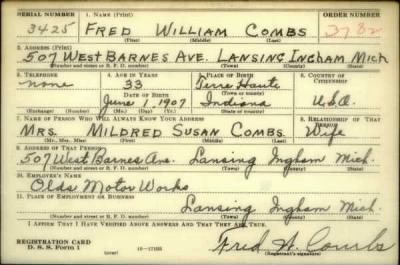 SERIAL NUMBER 1. NAME (Print) ORDER NUMBER
3425 FRED WILLIAM COMBS
(First) (Middle) (Last)
2. ADDRESS (Print)
507 WEST BARNES AVE. LANSING INGHAM MICH
(Number and street or R. F. D. number) (Town) (County) (State)
3. TELEPHONE 4. AGE IN YEARS 5. PLACE OF BIRTH 6. COUNTRY OF CITIZENSHIP
none 33 Terre Haute
DATE OF BIRTH (Town or county)
June 1, 1907 Indiana U.S.A.
(Exchange) (Number) (Mo.) (Day) (Yr.) (State or country)
7. NAME OF PERSON WHO WILL ALWAYS KNOW YOUR ADDRESS 8. RELATIONSHIP OF THAT PERSON
MRS. MILDRED SUSAN COMBS Wife
(Mr., Mrs., Miss) (First) (Middle) (Last)
9. ADDRESS OF THAT PERSON
507 West Barnes Ave. Lansing Ingham Mich.
(Number and street or R. F. D. number) (Town) (County) (State)
10. EMPLOYER'S NAME
Olds Motor Works
11. PLACE OF EMPLOYMENT OR BUSINESS
Lansing Ingham Mich.
(Number and street or R. F. D. number) (Town) (County) (State)
I AFFIRM THAT I HAVE VERIFIED ABOVE ANSWERS AND THAT THEY ARE TRUE.
REGISTRATION CARD
D. S. S. Form 1 (over) Fred W. Combs
(Registrant's signature)